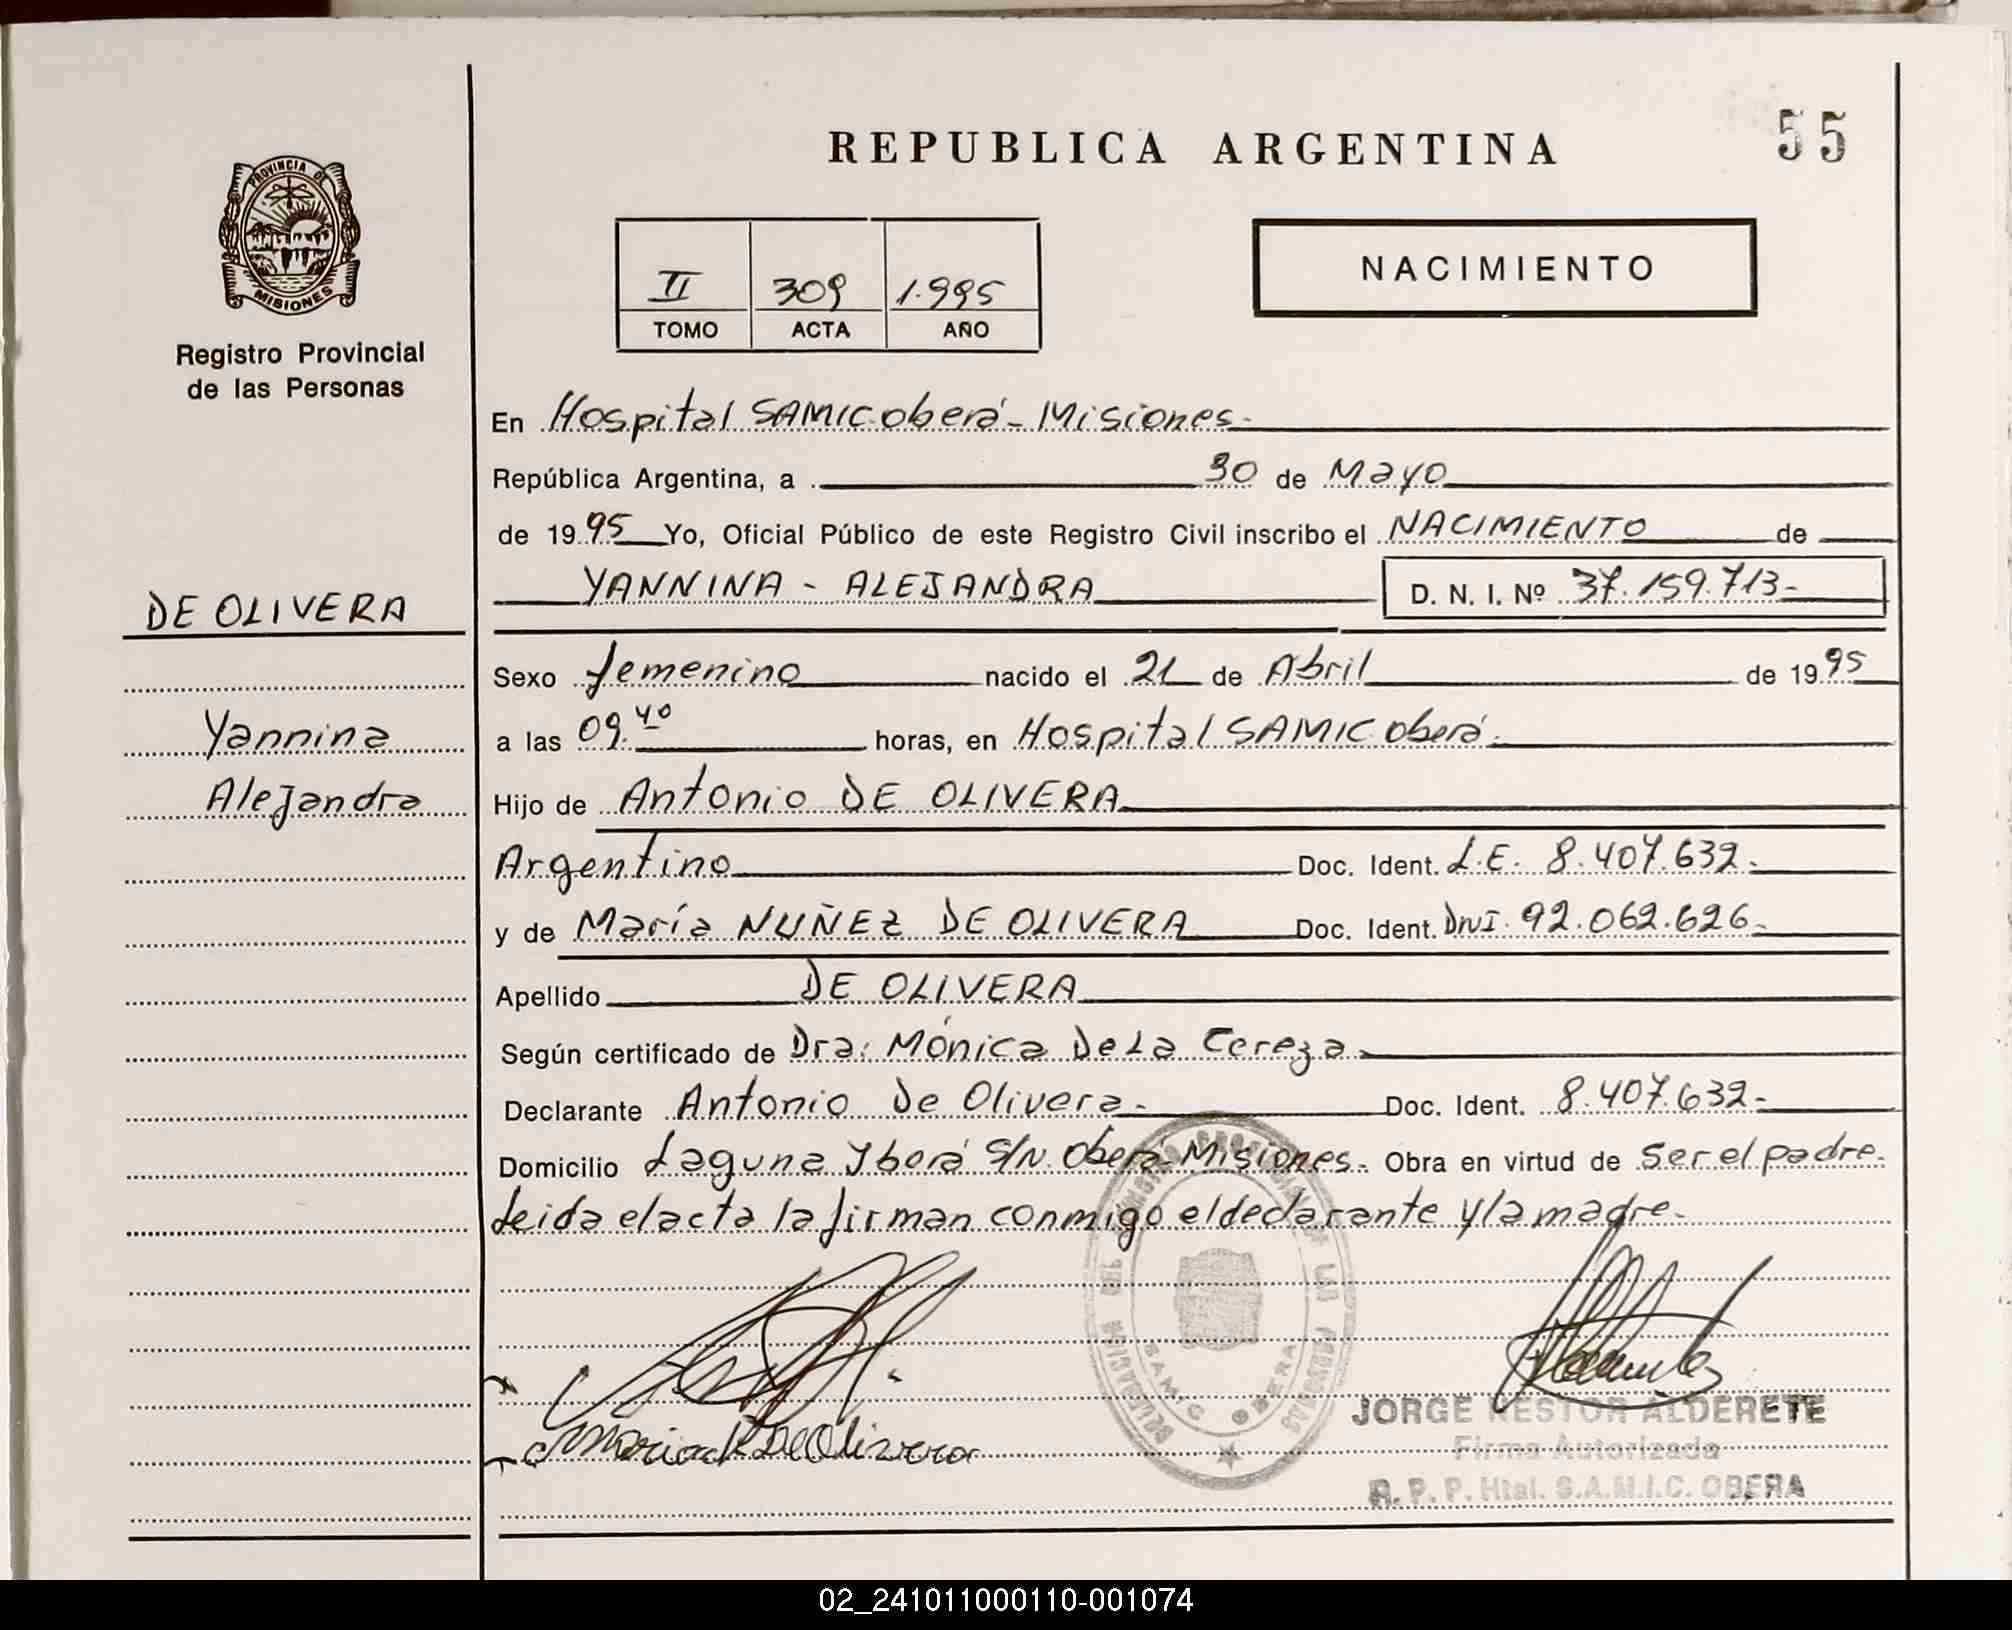 REPUBLICA ARGENTINA
55
PROVINCIA DE
MISIONES
Registro Provincial
de las Personas
II 309 1.995
TOMO ACTA AÑO
NACIMIENTO
En Hospital SAMIC Oberá - Misiones -
República Argentina, a 30 de Mayo
de 1995 Yo, Oficial Público de este Registro Civil inscribo el NACIMIENTO de
YANNINA - ALEJANDRA D. N. I. Nº 37.159.713-
DE OLIVERA
Yannina
Alejandra
Sexo femenino nacido el 21 de Abril de 1995
a las 09.40 horas, en Hospital SAMIC Oberá.
Hijo de Antonio DE OLIVERA
Argentino Doc. Ident. L.E. 8.407.632-
y de María NUÑEZ DE OLIVERA Doc. Ident. DNI. 92.062.626-
Apellido DE OLIVERA
Según certificado de Dra. Mónica De La Cereza
Declarante Antonio De Olivera - Doc. Ident. 8.407.632-
Domicilio Laguna Yberá S/N. Oberá Misiones - Obra en virtud de ser el padre.
Leida el acta la firman conmigo el declarante y la madre.
SAMIC OBERA
JORGE NESTOR ALDERETE
Firma Autorizada
R. P. P. Htal. S.A.M.I.C. OBERA
02_241011000110-001074